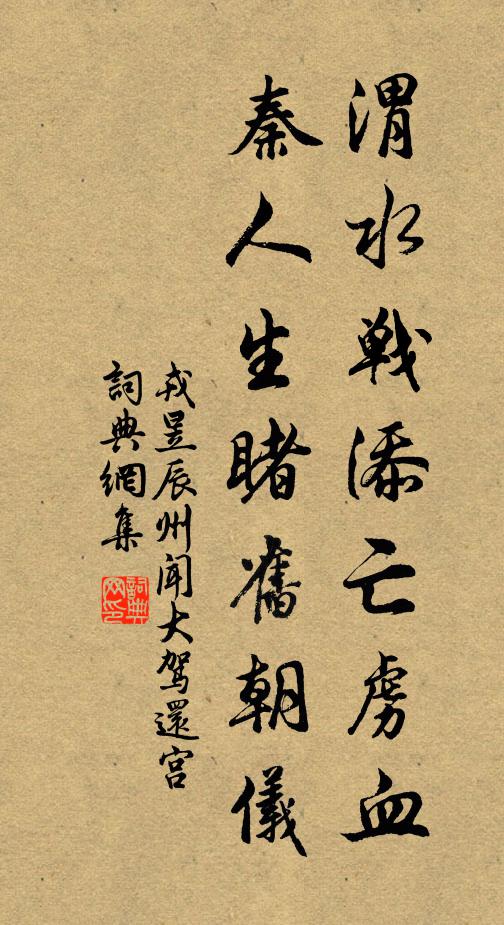 渭水戦添亡虜血
秦人生睹舊朝儀
戎昱辰州聞大駕還宮
詞典網集
詞典網印